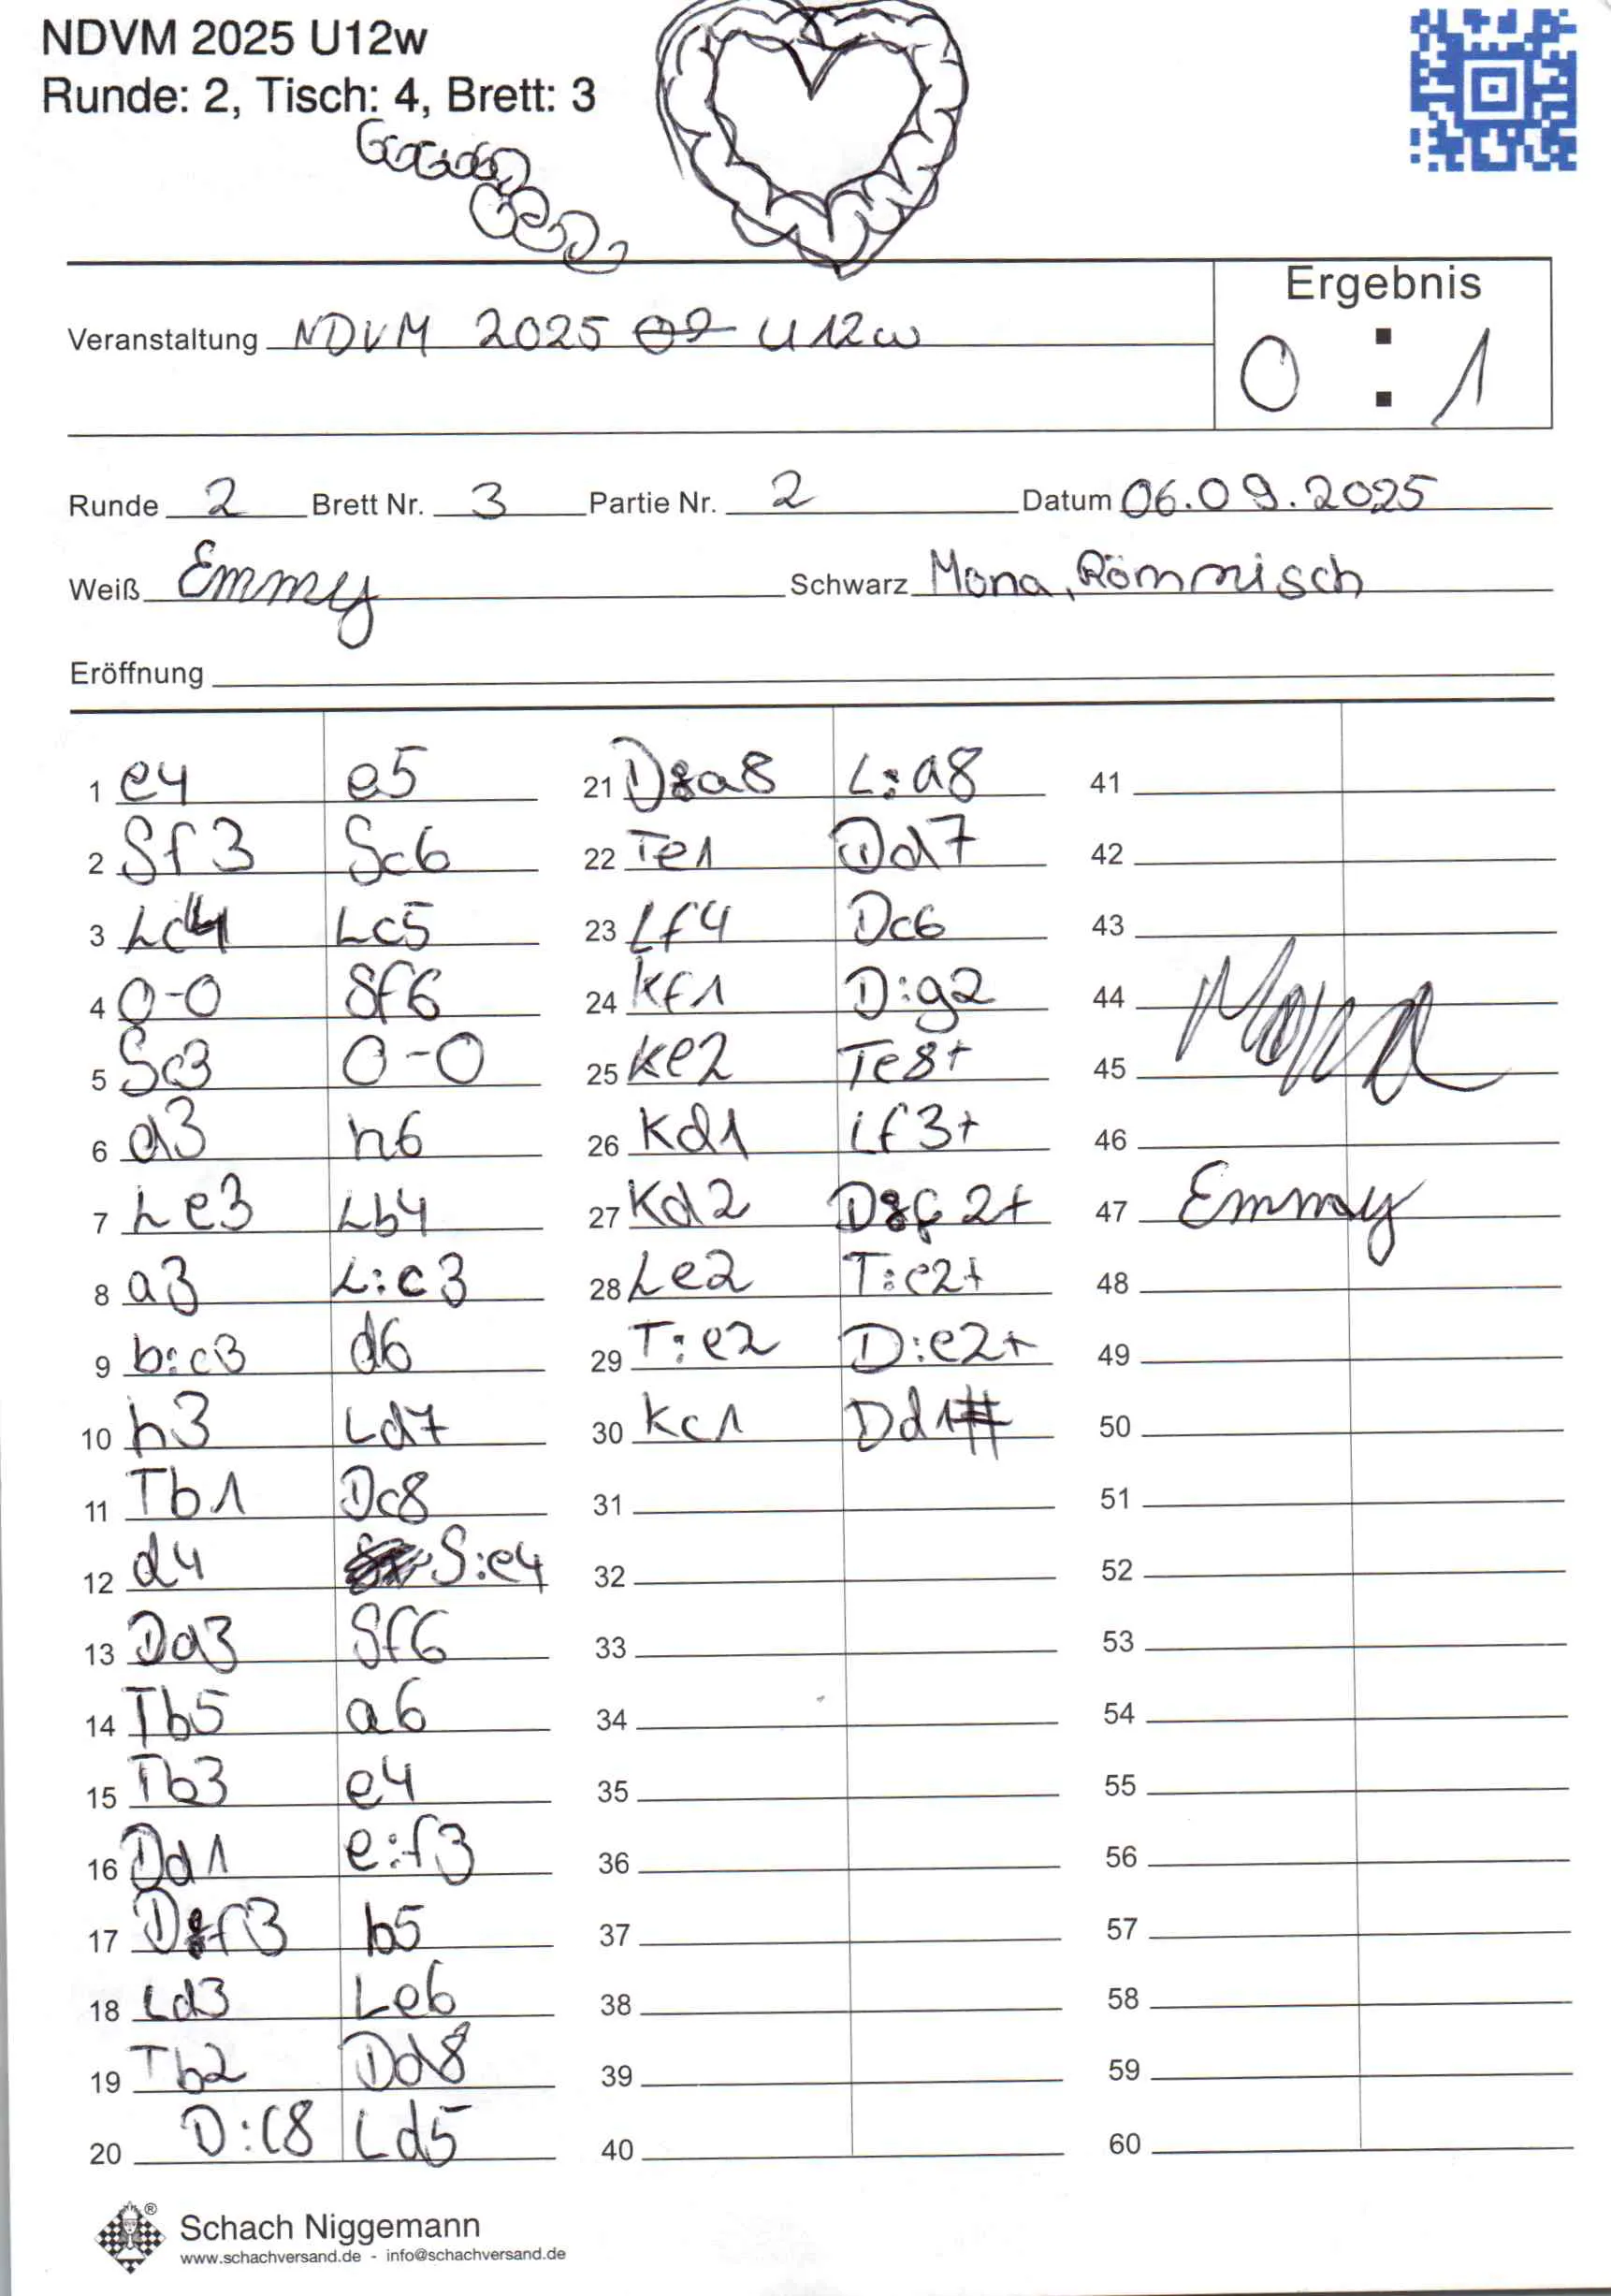 NDVM 2025 U12w
Runde: 2, Tisch: 4, Brett: 3
Ergebnis
Veranstaltung NDVM 2025 U12w
0 : 1
Runde 2 Brett Nr. 3 Partie Nr. 2 Datum 06.09.2025
Weiß Emmy Schwarz Mona, Römmisch
Eröffnung
1 e4 e5
2 Sf3 Sc6
3 Lc4 Lc5
4 0-0 Sf6
5 Sc3 0-0
6 d3 h6
7 Le3 Lb4
8 a3 L:c3
9 b:c3 d6
10 h3 Ld7
11 Tb1 Dc8
12 d4 S:e4
13 Dd3 Sf6
14 Tb5 a6
15 Tb3 e4
16 Dd1 e:f3
17 D:f3 b5
18 Ld3 Le6
19 Tb2 Dd8
20 D:c8 Ld5
21 D:a8 L:a8
22 Te1 Dd7
23 Lf4 Dc6
24 Kf1 D:g2
25 Ke2 Te8+
26 Kd1 Lf3+
27 Kd2 D:f2+
28 Le2 T:e2+
29 T:e2 D:e2+
30 Kc1 Dd1#
31
32
33
34
35
36
37
38
39
40
41
42
43
44 Mona
45
46
47 Emmy
48
49
50
51
52
53
54
55
56
57
58
59
60
Schach Niggemann
www.schachversand.de - info@schachversand.de